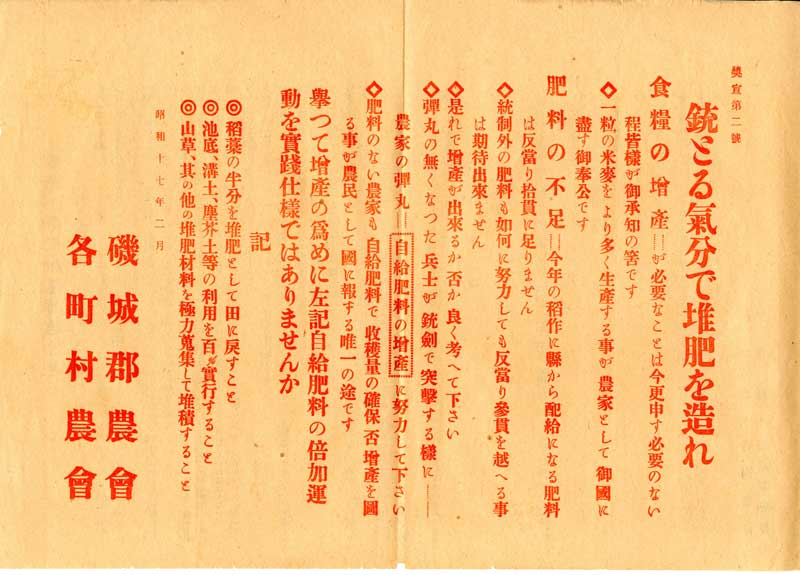 奬宣第二號
銃とる氣分で堆肥を造れ
食糧の增產──が必要なことは今更申す必要のない
程皆樣が御承知の筈です
◇一粒の米麥をより多く生產する事が農家として御國に
盡す御奉公です
肥料の不足──今年の稻作に縣から配給になる肥料
は反當り拾貫に足りません
◇統制外の肥料も如何に努力しても反當り參貫を越へる事
は期待出來ません
◇是れで增產が出來るか否か良く考へて下さい
◇彈丸の無くなつた兵士が銃劍で突擊する樣に──
農家の彈丸──自給肥料の增產に努力して下さい
◇肥料のない農家も自給肥料で收穫量の確保否增產を圖
る事が農民として國に報する唯一の途です
擧つて增產の爲めに左記自給肥料の倍加運
動を實踐仕樣ではありませんか
記
◎稻藁の半分を堆肥として田に戻すこと
◎池底、溝土、塵芥土等の利用を百%實行すること
◎山草、其の他の堆肥材料を極力蒐集して堆積すること
昭和十七年二月
磯城郡農會
各町村農會